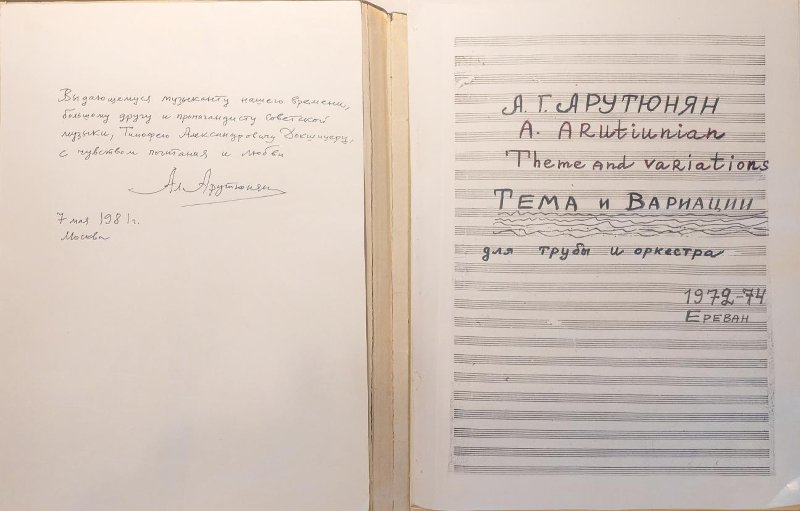 Выдающемуся музыканту нашего времени,
большому другу и пропагандисту советской
музыки, Тимофею Александровичу Докшицеру,
с чувством почитания и любви
Ал. Арутюнян
7 мая 1981г.
Москва
А. Г. АРУТЮНЯН
A. ARutiunian
Theme and variations
ТЕМА и ВАРИАЦИИ
для трубы и оркестра
1972-74
ЕРЕВАН